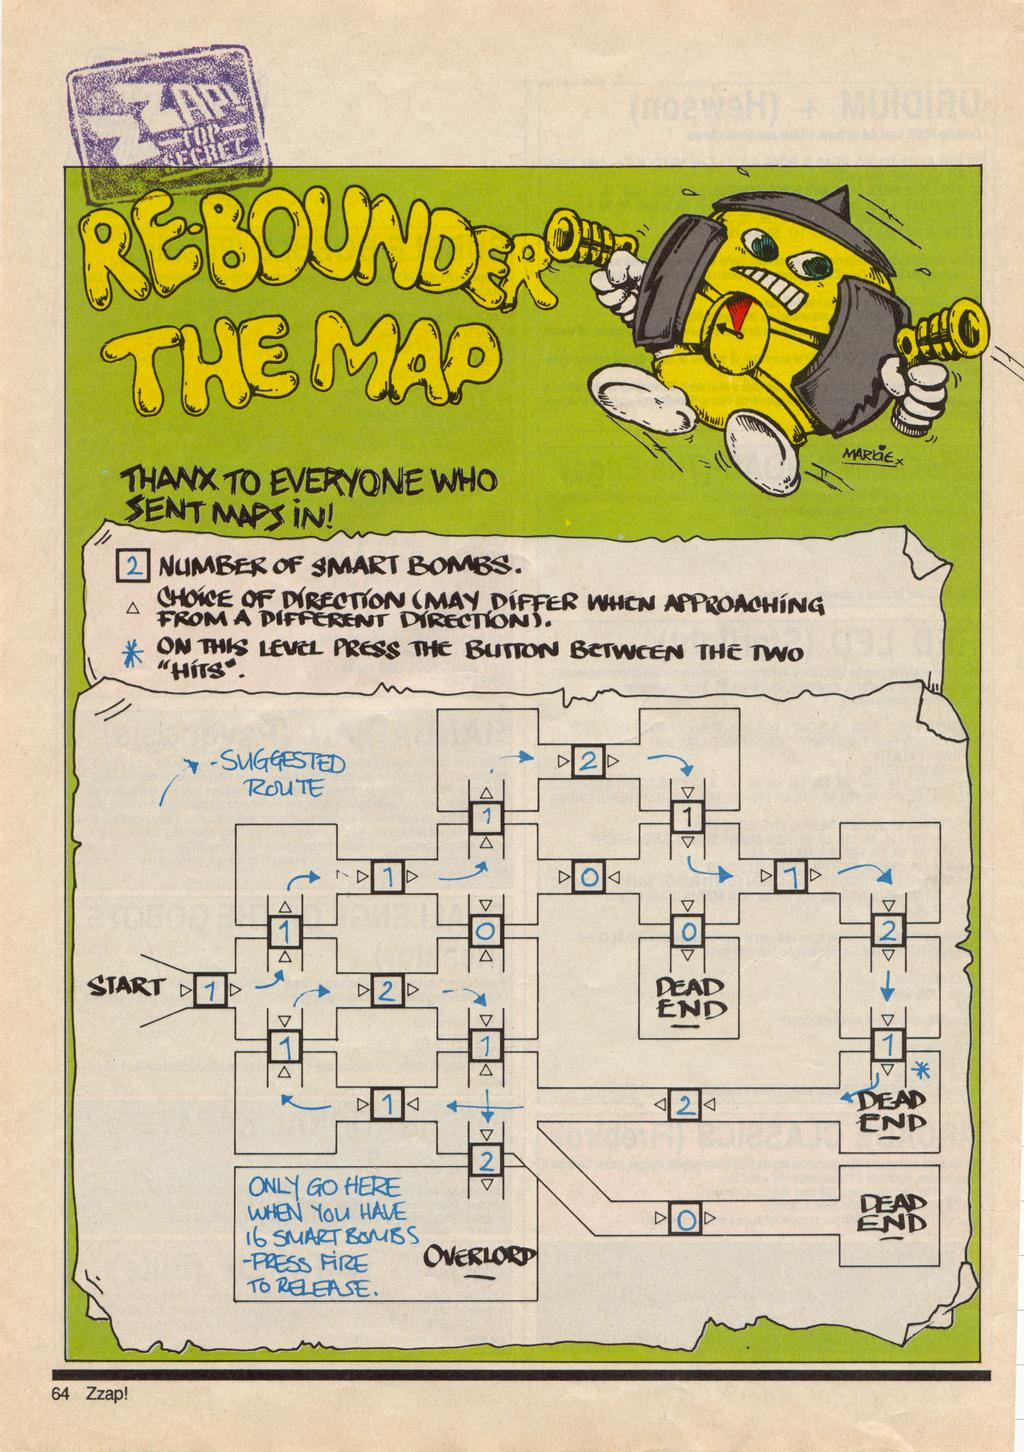 ZZAP!
TOP
SECRET
RE-BOUNDER
THE MAP
MARKIE x
THANX TO EVERYONE WHO
SENT MAPS IN!
2 NUMBER OF SMART BOMBS.
△ CHOICE OF DIRECTION (MAY DIFFER WHEN APPROACHING
FROM A DIFFERENT DIRECTION).
* ON THIS LEVEL PRESS THE BUTTON BETWEEN THE TWO
"HITS".
- SUGGESTED
ROUTE
2
1
1
1
0
1
1
0
0
2
START
1
2
DEAD
END
1
1
1
*
1
2
DEAD
END
2
ONLY GO HERE
WHEN YOU HAVE
16 SMART BOMBS
-PRESS FIRE
TO RELEASE.
OVERLORD
0
DEAD
END
64 Zzap!